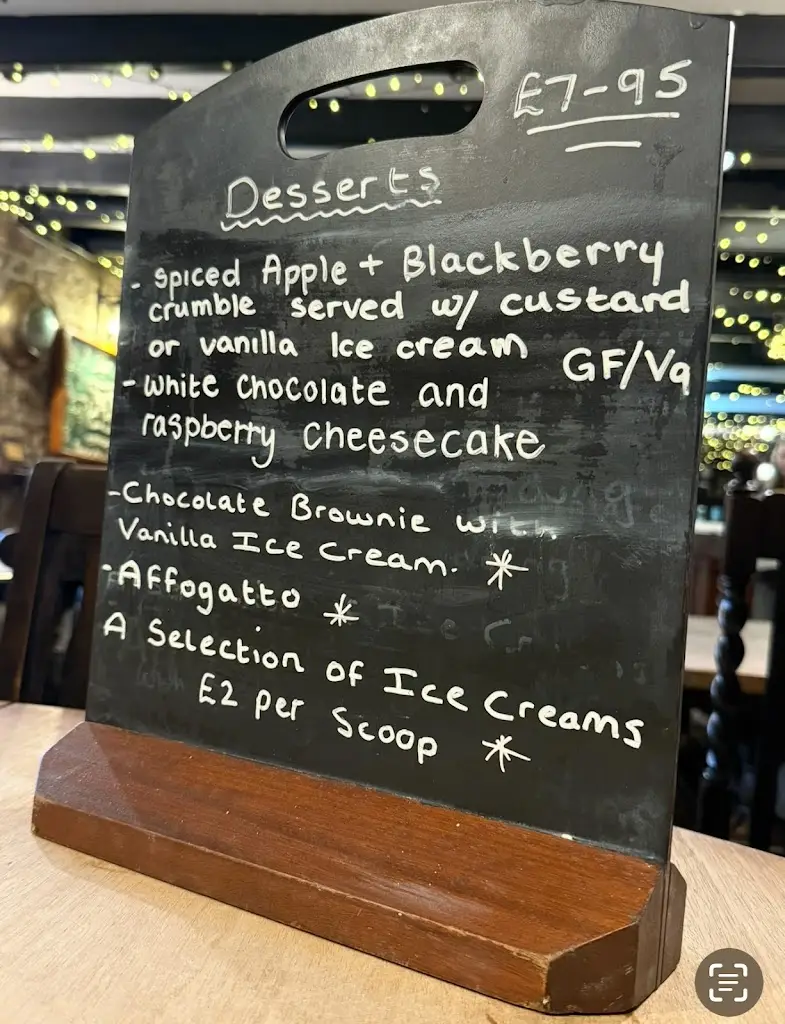 £7-95
Desserts
- spiced Apple + Blackberry
crumble served w/ custard
or vanilla Ice cream GF/Vg
- white chocolate and
raspberry cheesecake
- Chocolate Brownie with
Vanilla Ice Cream. *
- Affogatto *
A Selection of Ice Creams
£2 per Scoop *